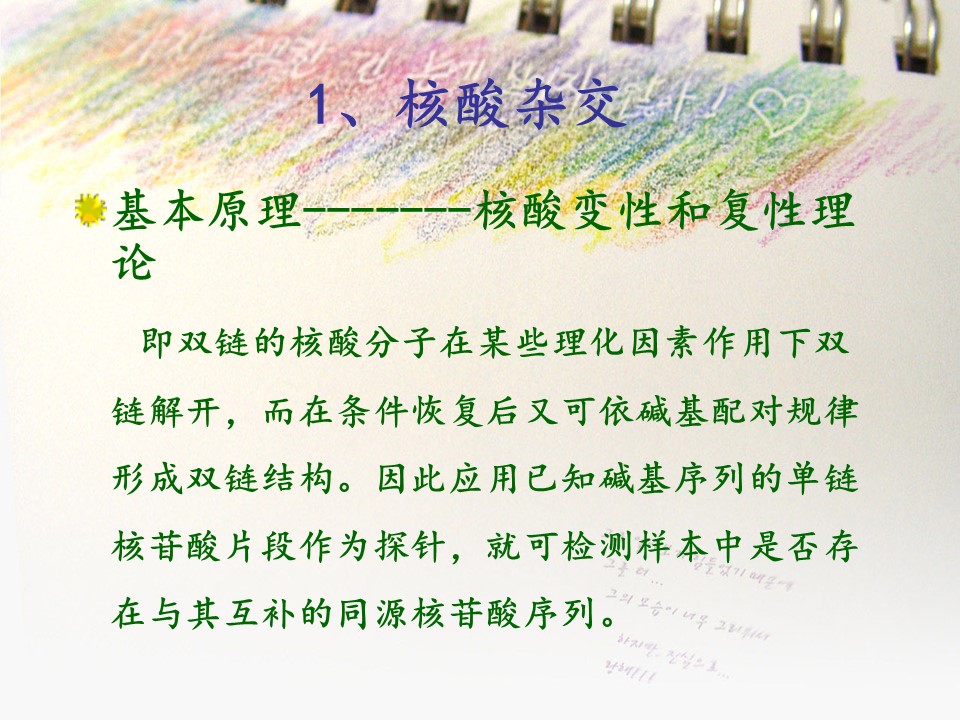 1、核酸杂交
基本原理-------核酸变性和复性理
论
即双链的核酸分子在某些理化因素作用下双
链解开，而在条件恢复后又可依碱基配对规律
形成双链结构。因此应用已知碱基序列的单链
核苷酸片段作为探针，就可检测样本中是否存
在与其互补的同源核苷酸序列。
그의 모습이 너무 그리워서
하지만 진심으로...